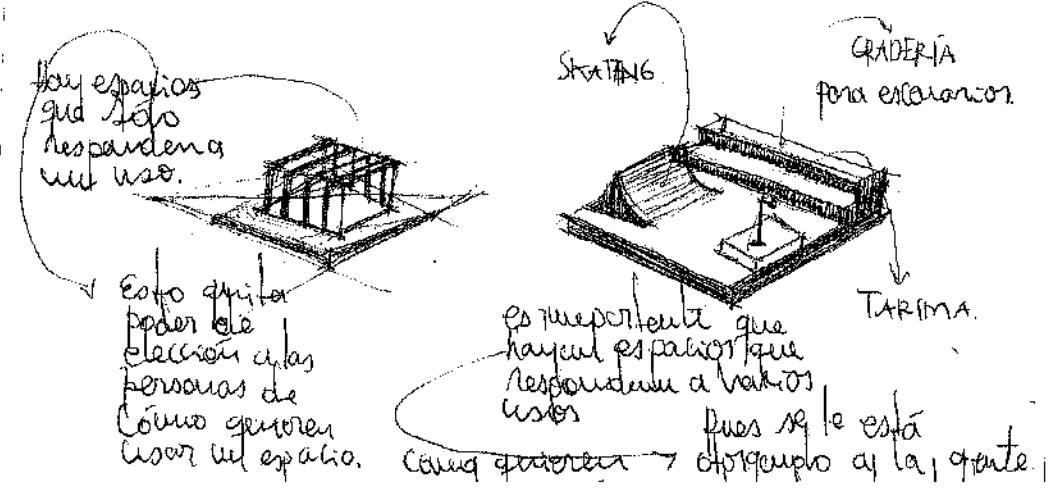 Hay espacios
que sólo
responden a
un uso.
Esto quita
poder de
elección a las
personas de
cómo quieren
usar un espacio.
SKATING
GRADERÍA
para escenarios.
TARIMA.
es importante que
hayan espacios que
respondan a varios
usos
pues se le está
otorgando a la gente
como quieren